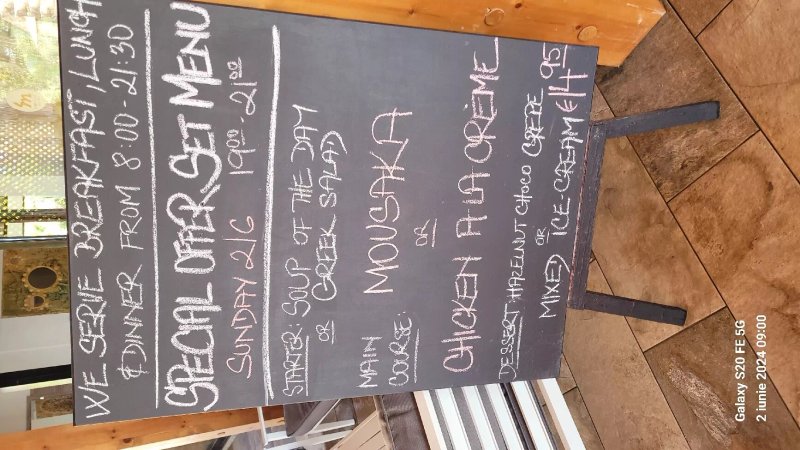 WE SERVE BREAKFAST, LUNCH
& DINNER FROM 8:00 - 21:30
SPECIAL OFFER SET MENU
SUNDAY 2/6 19⁰⁰ - 21⁰⁰
STARTER: SOUP OF THE DAY
OR
GREEK SALAD
MAIN COURSE: MOUSAKA
OR
CHICKEN A LA CRÈME
DESSERT: HAZELNUT CHOCO CREPE
OR
MIXED ICE CREAM €14.95
Galaxy S20 FE 5G
2 iunie 2024 09:00